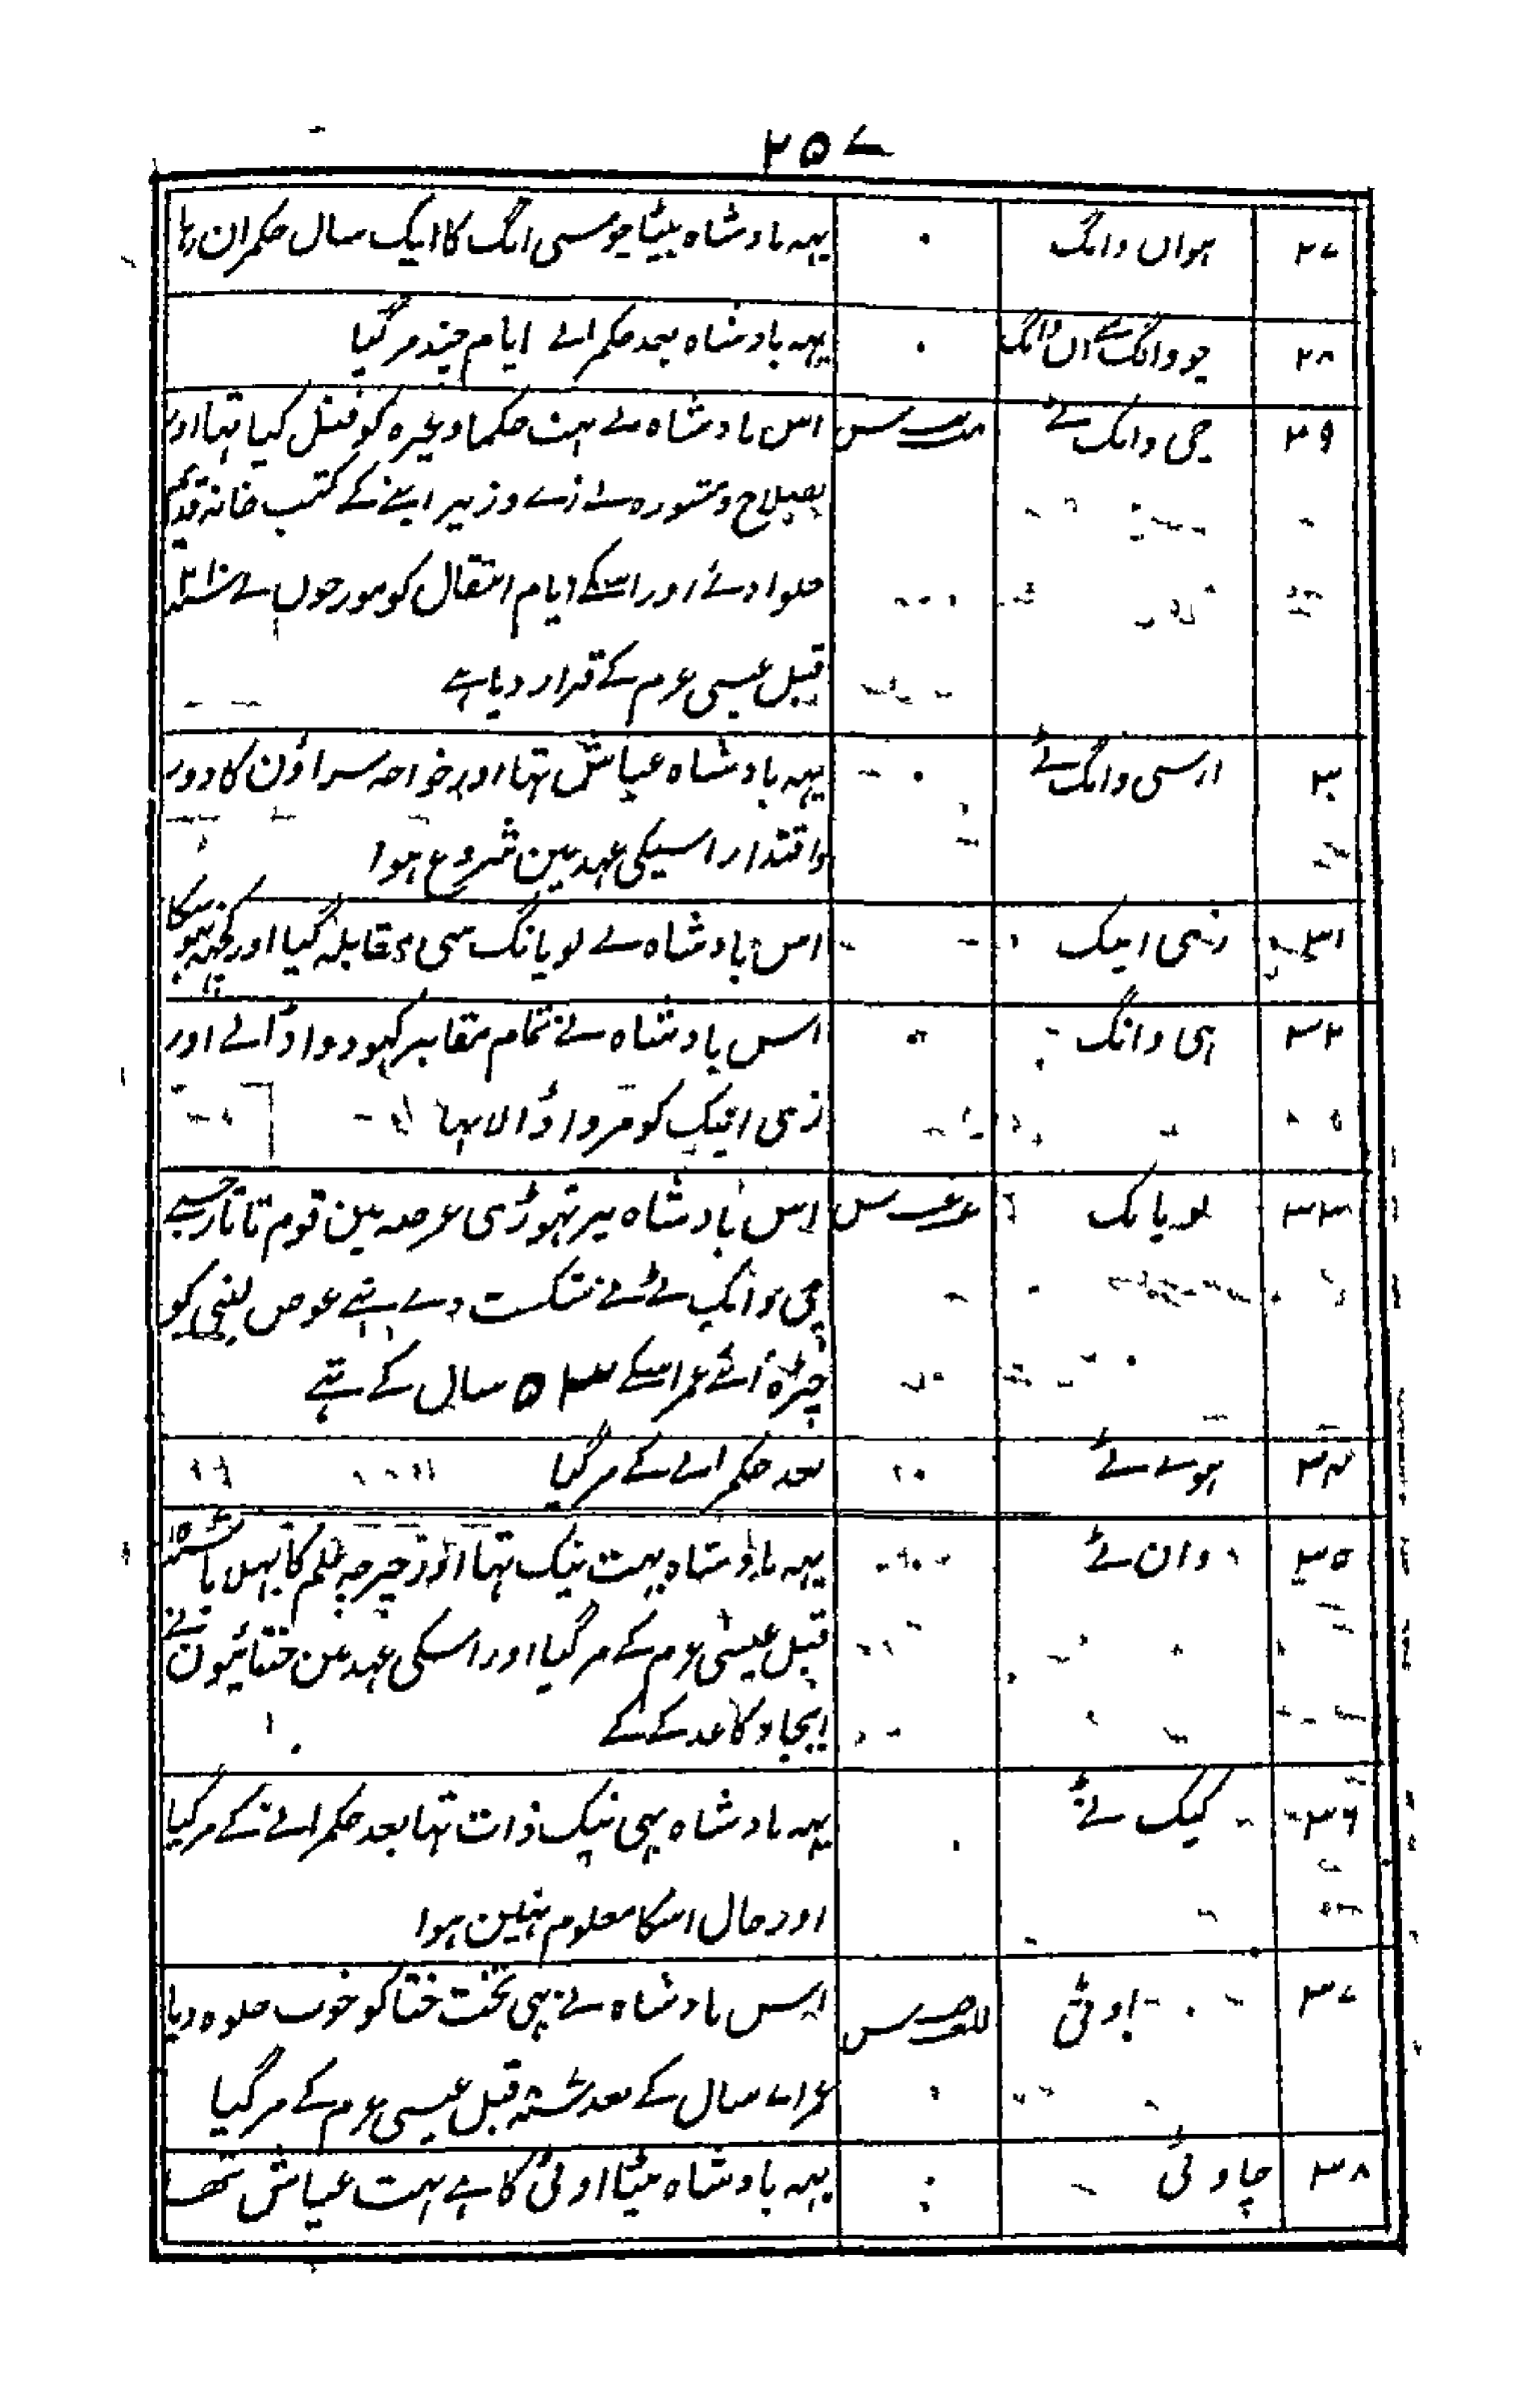 ۲۵۷
۲۷ ہواں وانگ ۰ یہہ بادشاہ بیٹا چوسی انگ کا ایک سال حکمران رہا
۲۸ چو وانگ ۰ یہہ بادشاہ بعد حکمرانے ایام چند مرگیا
۲۹ چی وانگ ٹے اس بادشاہ نے بہت حکما وغیرہ کو قتل کیا تہا اور
بصلاح و مشورہ وزیر اپنے کے کتب خانہ قدیم
جلوا دئے اور اسکے ایام انتقال کو مورخوں نے
قبل عیسی عرم کے قرار دیا ہے
۳۰ ارسی وانگ ٹے ۰ یہہ بادشاہ عیاش تہا اور خواجہ سراؤن کا دور
واقتدار اسیکی عہد مین شروع ہوا
۳۱ زسی اینک اس بادشاہ نے لویانگ سی مقابلہ کیا اور کچہہ نہو سکا
۳۲ ہی وانگ ۰ اس بادشاہ نے تمام مقابر کہودوا ڈالے اور
زسی اینک کو مروا ڈالا تہا
۳۳ لویانگ اس بادشاہ پر تہوڑی عرصہ مین قوم تاتار جسے
چی وانگ ٹے نے شکست دے تہے عوض لینی کو
چڑہ آئے عمر اسکے ۵۳ سال کے تہے
۳۴ ہوے ٹے ۰ بعد حکمرانے کے مرگیا
۳۵ وان ٹے یہہ بادشاہ بہت نیک تہا اور چرچہ علم کا پہلایا
قبل عیسی عرم کے مرگیا اور اسکی عہد مین ختائیون نے
ایجاد کاغذ کے کے
۳۶ کینک ٹے ۰ یہہ بادشاہ بہی نیک ذات تہا بعد حکمرانے کے مرگیا
اور حال اسکا معلوم نہین ہوا
۳۷ اوٹی اس بادشاہ نے بہی تخت ختا کو خوب جلوہ دیا
عمر ۷۱ سال کے بعد قبل عیسی عرم کے مرگیا
۳۸ چاوٹی ۰ یہہ بادشاہ بیٹا اوٹی کا ہے بہت عیاش تھا